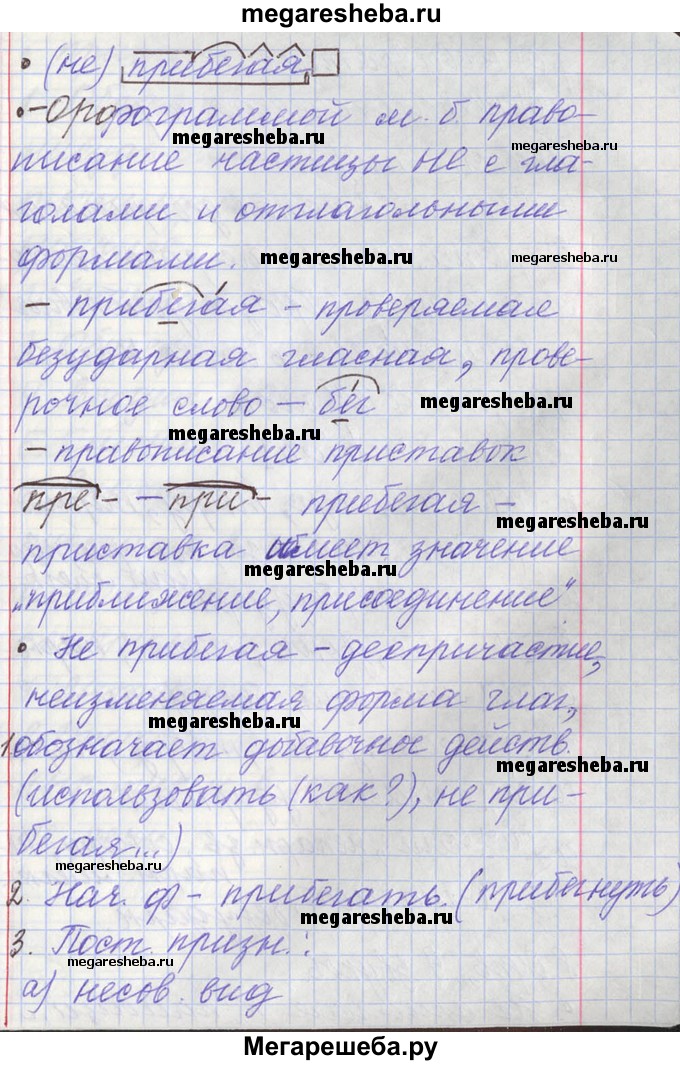 megaresheba.ru
• (не) прибегая
•-Орфограммой м. б. право-
megaresheba.ru
megaresheba.ru
писание частицы не с гла-
голами и отглагольными
формами.
megaresheba.ru
megaresheba.ru
- прибегая - проверяемая
безударная гласная, прове-
рочное слово - бег
megaresheba.ru
megaresheba.ru
- правописание приставок
пре- -при- прибегая -
megaresheba.ru
приставка имеет значение
megaresheba.ru
„приближение, присоединение"
• Не прибегая - деепричастие,
неизменяемая форма глаг,
megaresheba.ru
1. обозначает добавочное действ.
megaresheba.ru
(использовать (как?), не при-
бегая...)
megaresheba.ru
2. Нач. ф - прибегать. (прибегнуть)
megaresheba.ru
3. Пост. призн.:
megaresheba.ru
а) несов. вид
Мегарешеба.ру